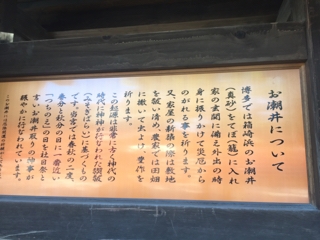 お潮井について
博多では箱崎浜のお潮井
（真砂）をてぼ（籠）に入れ
家の玄関に備え外出の時
身に振りかけて災厄から
のがれる事を祈ります。
又、家屋の新築の際は敷地
を祓い清め、農家では田畑
に撒いて虫よけ、豊作を
祈ります。
この起源は非常に古く神代の
時代に神神が行なわれた禊祓
（みそぎはらい）に基づくもの
です。当宮では春秋の二度、
春分と秋分の日に一番近い
「つちのえ」の日を社日祭と
言いお潮井取りの神事が
賑やかに行なわれています。